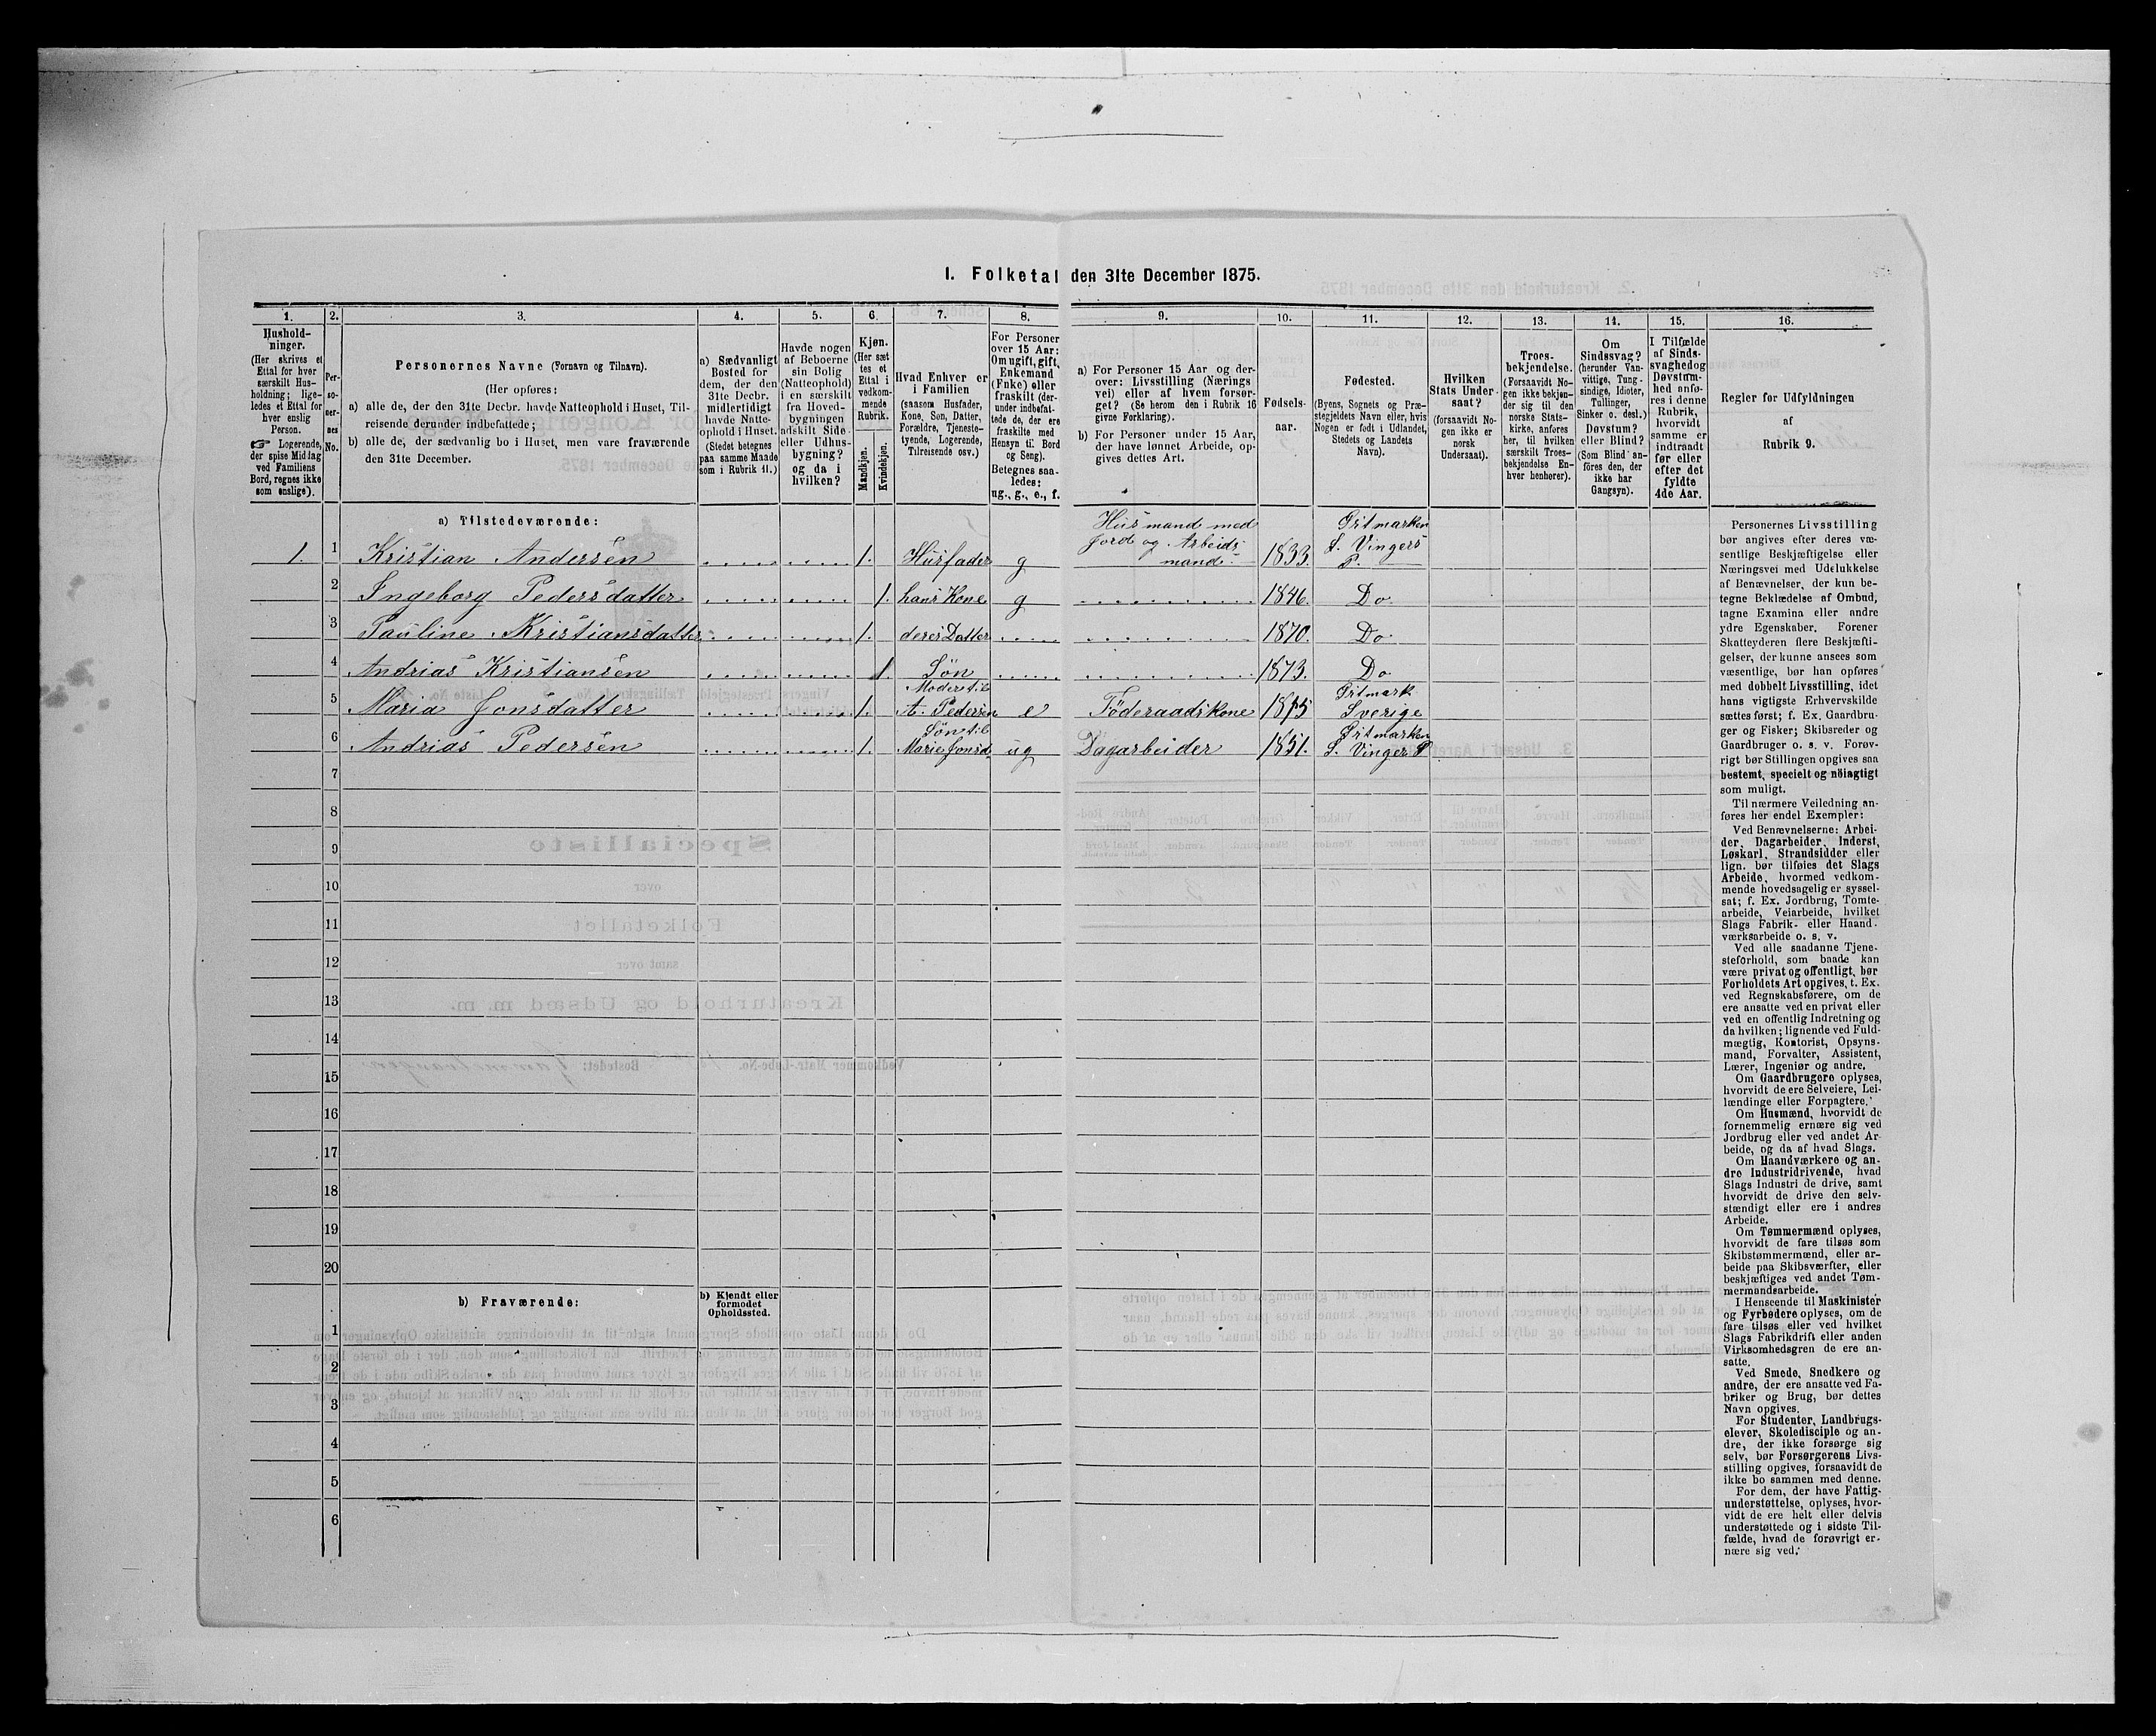 I. Folketal den 31te December 1875.
1. 2. 3. 4. 5. 6. 7. 8. 9. 10. 11. 12. 13. 14. 15. 16.
Hushold-
ninger.
(Her skrives et
Ettal for hver
særskilt Hus-
holdning; lige-
ledes et Ettal for
hver enslig
Person.
☞ Logerende,
der spise Middag
ved Familiens
Bord, regnes ikke
som enslige).
Per-
so-
ner-
nes
No.
Personernes Navne (Fornavn og Tilnavn).
(Her opføres:
a) alle de, der den 31te Decbr. havde Natteophold i Huset, Til-
reisende derunder indbefattede;
b) alle de, der sædvanlig bo i Huset, men vare fraværende
den 31te December.
a) Sædvanligt
Bosted for
dem, der den
31te Decbr.
midlertidigt
havde Natte-
ophold i Huset.
(Stedet betegnes
paa samme Maade
som i Rubrik 11.)
Havde nogen
af Beboerne
sin Bolig
(Natteophold)
i en særskilt
fra Hoved-
bygningen
adskilt Side-
eller Udhus-
bygning?
og da i
hvilken?
Kjøn.
(Her sæt
tes et
Ettal i
vedkom-
mende
Rubrik.
Mandkjøn.
Kvindekjøn.
Hvad Enhver er
i Familien
(saasom Husfader,
Kone, Søn, Datter,
Forældre, Tjeneste-
tyende, Logerende,
Tilreisende osv.)
For Personer
over 15 Aar:
Om ugift, gift,
Enkemand
(Enke) eller
fraskilt (der-
under indbefat-
tede de, der ere
fraskilte med
Hensyn til Bord
og Seng).
Betegnes saa-
ledes:
ug., g., e., f.
a) For Personer 15 Aar og der-
over: Livsstilling (Nærings
vei) eller af hvem forsør-
get? (Se herom den i Rubrik 16
givne Forklaring).
b) For Personer under 15 Aar,
der have lønnet Arbeide, op-
gives dettes Art.
Fødsels-
aar.
Fødested.
(Byens, Sognets og Præ-
stegjeldets Navn eller, hvis
Nogen er født i Udlandet,
Stedets og Landets
Navn).
Hvilken
Stats Under-
saat?
(forsaavidt No-
gen ikke er
norsk
Undersaat).
Troes-
bekjendelse.
(Forsaavidt No-
gen ikke bekjen-
der sig til den
norske Stats-
kirke, anføres
her, til hvilken
særskilt Troes-
bekjendelse En-
hver henhører).
Om
Sindssvag?
(herunder Van-
vittige, Tung-
sindige, Idioter,
Tullinger,
Sinker o. desl.)
Døvstum?
eller Blind?
(Som Blind an-
föres den, der
ikke har
Gangsyn).
I Tilfælde
af Sinds-
svaghed og
Døvstum-
hed anfø-
res i denne
Rubrik,
hvorvidt
samme er
indtraadt
før eller
efter det
fyldte
4de Aar.
Regler for Udfyldningen
af
Rubrik 9.
a) Tilstedeværende:
1. 1 Kristian Andersen 1. Husfader g Husmand med Jord og Arbeidsmand 1833. Gritmarken S. Vingers P.
2 Ingeborg Pedersdatter 1. hans Kone g 1846. Do
3 Pauline Kristiansdatter 1. deres Datter 1870. Do
4 Andrias Kristiansen 1. Søn 1873. Do
5 Maria Jonsdatter 1. Moder til A. Pedersen e Föderaadskone Gritmark Sverige
6 Andrias Pedersen 1. Søn til Marie Jonsd. ug Dagarbeider 1851. Gritmarken S. Vinger P
7
8
9
10
11
12
13
14
15
16
17
18
19
20
b) Fraværende:
b) Kjendt eller
formodet
Opholdssted.
1
2
3
4
5
6
Personernes Livsstilling
bør angives efter deres væ-
sentlige Beskjæftigelse eller
Næringsvei med Udelukkelse
af Benævnelser, der kun be-
tegne Beklædelse af Ombud,
tagne Examina eller andre
ydre Egenskaber. Forener
Skatteyderen flere Beskjæfti-
gelser, der kunne ansees som
væsentlige, bør han opføres
med dobbelt Livsstilling, idet
hans vigtigste Erhvervskilde
sættes først; f. Ex. Gaardbru-
ger og Fisker; Skibsreder og
Gaardbruger o. s. v. Forøv-
rigt bør Stillingen opgives saa
bestemt, specielt og nöiagtigt
som muligt.
Til nærmere Veiledning an-
føres her endel Exempler:
Ved Benævnelserne: Arbei-
der, Dagarbeider, Inderst,
Løskarl, Strandsidder eller
lign. bør tilføies det Slags
Arbeide, hvormed vedkom-
mende hovedsagelig er syssel-
sat; f. Ex. Jordbrug, Tomte-
arbeide, Veiarbeide, hvilket
Slags Fabrik- eller Haand-
værksarbeide o. s. v.
Ved alle saadanne Tjene-
steforhold, som baade kan
være privat og offentligt, bør
Forholdets Art opgives, t. Ex.
ved Regnskabsførere, om de
ere ansatte ved en privat eller
ved en offentlig Indretning og
da hvilken; lignende ved Fuld-
mægtig, Kontorist, Opsyns-
mand, Forvalter, Assistent,
Lærer, Ingeniør og andre.
Om Gaardbrugere oplyses,
hvorvidt de ere Selveiere, Lei-
lændinge eller Forpagtere.
Om Husmænd, hvorvidt de
fornemmelig ernære sig ved
Jordbrug eller ved andet Ar-
beide, og da af hvad Slags.
Om Haandværkere og an-
dre Industridrivende, hvad
Slags Industri de drive, samt
hvorvidt de drive den selv-
stændigt eller ere i andres
Arbeide.
Om Tømmermænd oplyses,
hvorvidt de fare tilsøs som
Skibstømmermænd, eller ar-
beide paa Skibsværfter, eller
beskjæftiges ved andet Tøm-
mermandsarbeide.
I Henseende til Maskinister
og Fyrbødere oplyses, om de
fare tilsøs eller ved hvilket
Slags Fabrikdrift eller anden
Virksomhedsgren de ere an-
satte.
Ved Smede, Snedkere og
andre, der ere ansatte ved Fa-
briker og Brug, bør dettes
Navn opgives.
For Studenter, Landbrugs-
elever, Skoledisciple og an-
dre, der ikke forsørge sig
selv, bør Forsørgerens Livs-
stilling opgives, forsaavidt de
ikke bo sammen med denne.
For dem, der have Fattig-
understøttelse, oplyses, hvor-
vidt de ere helt eller delvis
understøttede og i sidste Til-
fælde, hvad de forøvrigt er-
nære sig ved.